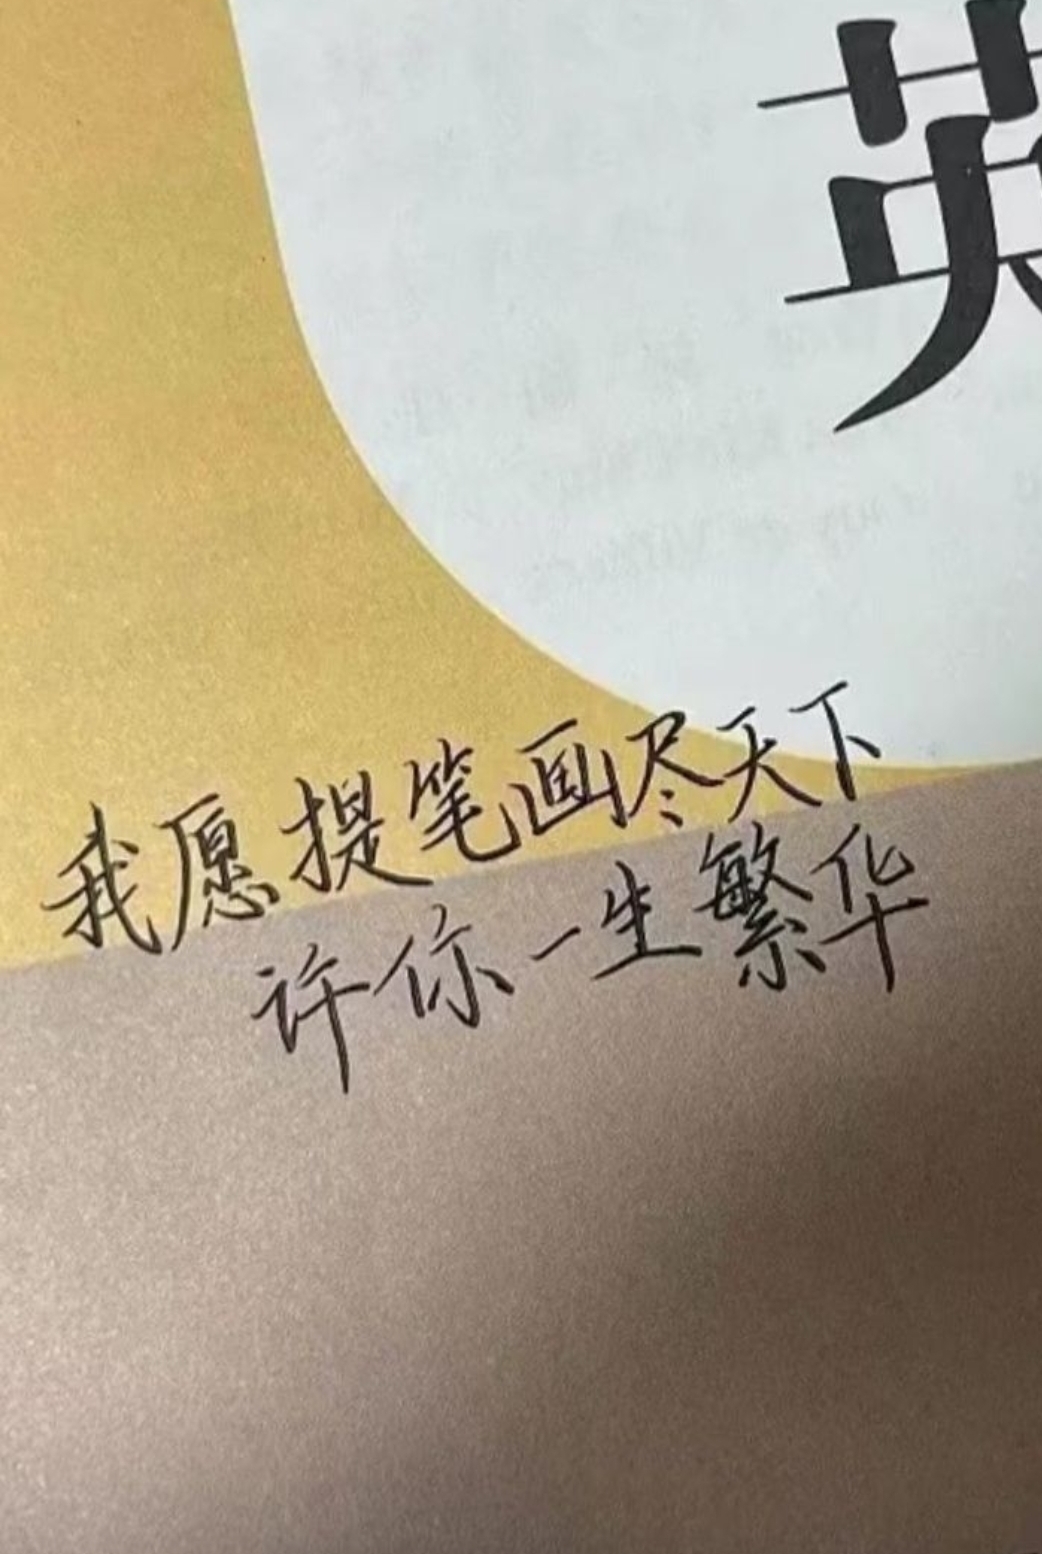 英
我愿提笔画尽天下
许你一生繁华